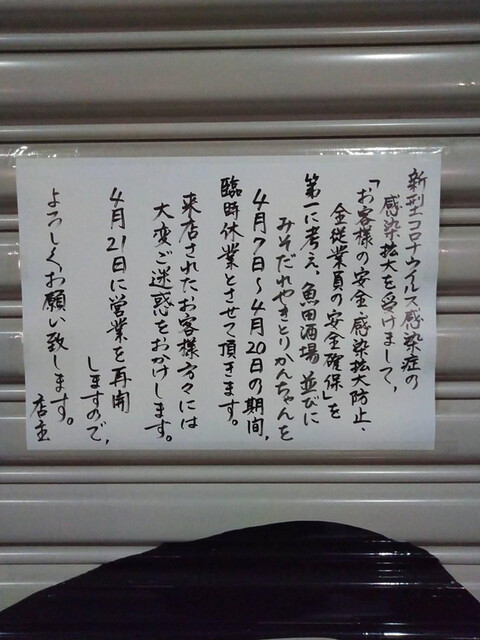 新型コロナウイルス感染症の
感染拡大を受けまして、
「お客様の安全・感染拡大防止、
全従業員の安全確保」を
第一に考え、魚田酒場 並びに
みそだれやきとりかんちゃんを
4月7日〜4月20日の期間、
臨時休業とさせて頂きます。
来店されたお客様方々には
大変ご迷惑をおかけします。
4月21日に営業を再開
しますので、
よろしくお願い致します。
店主